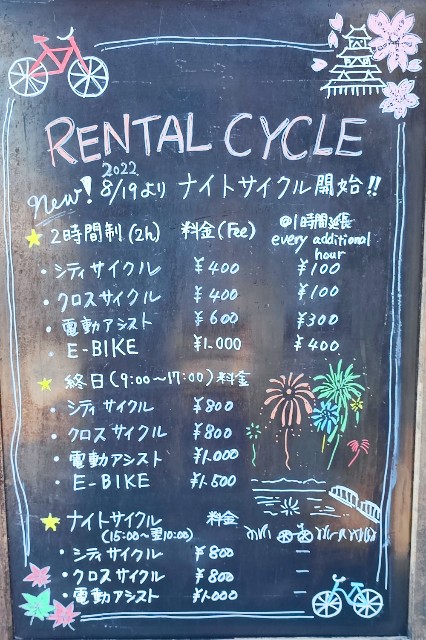 RENTAL CYCLE
2022
New! 8/19より ナイトサイクル開始!!
2時間制(2h) 料金(Fee) @1時間延長 every additional hour
・シティサイクル ¥400 ¥100
・クロスサイクル ¥400 ¥100
・電動アシスト ¥600 ¥300
・E-BIKE ¥1.000 ¥400
終日(9:00~17:00)料金
・シティサイクル ¥800
・クロスサイクル ¥800
・電動アシスト ¥1.000
・E-BIKE ¥1.500
ナイトサイクル 料金
(15:00~翌10:00)
・シティサイクル ¥800 ー
・クロスサイクル ¥800 ー
・電動アシスト ¥1.000 ー